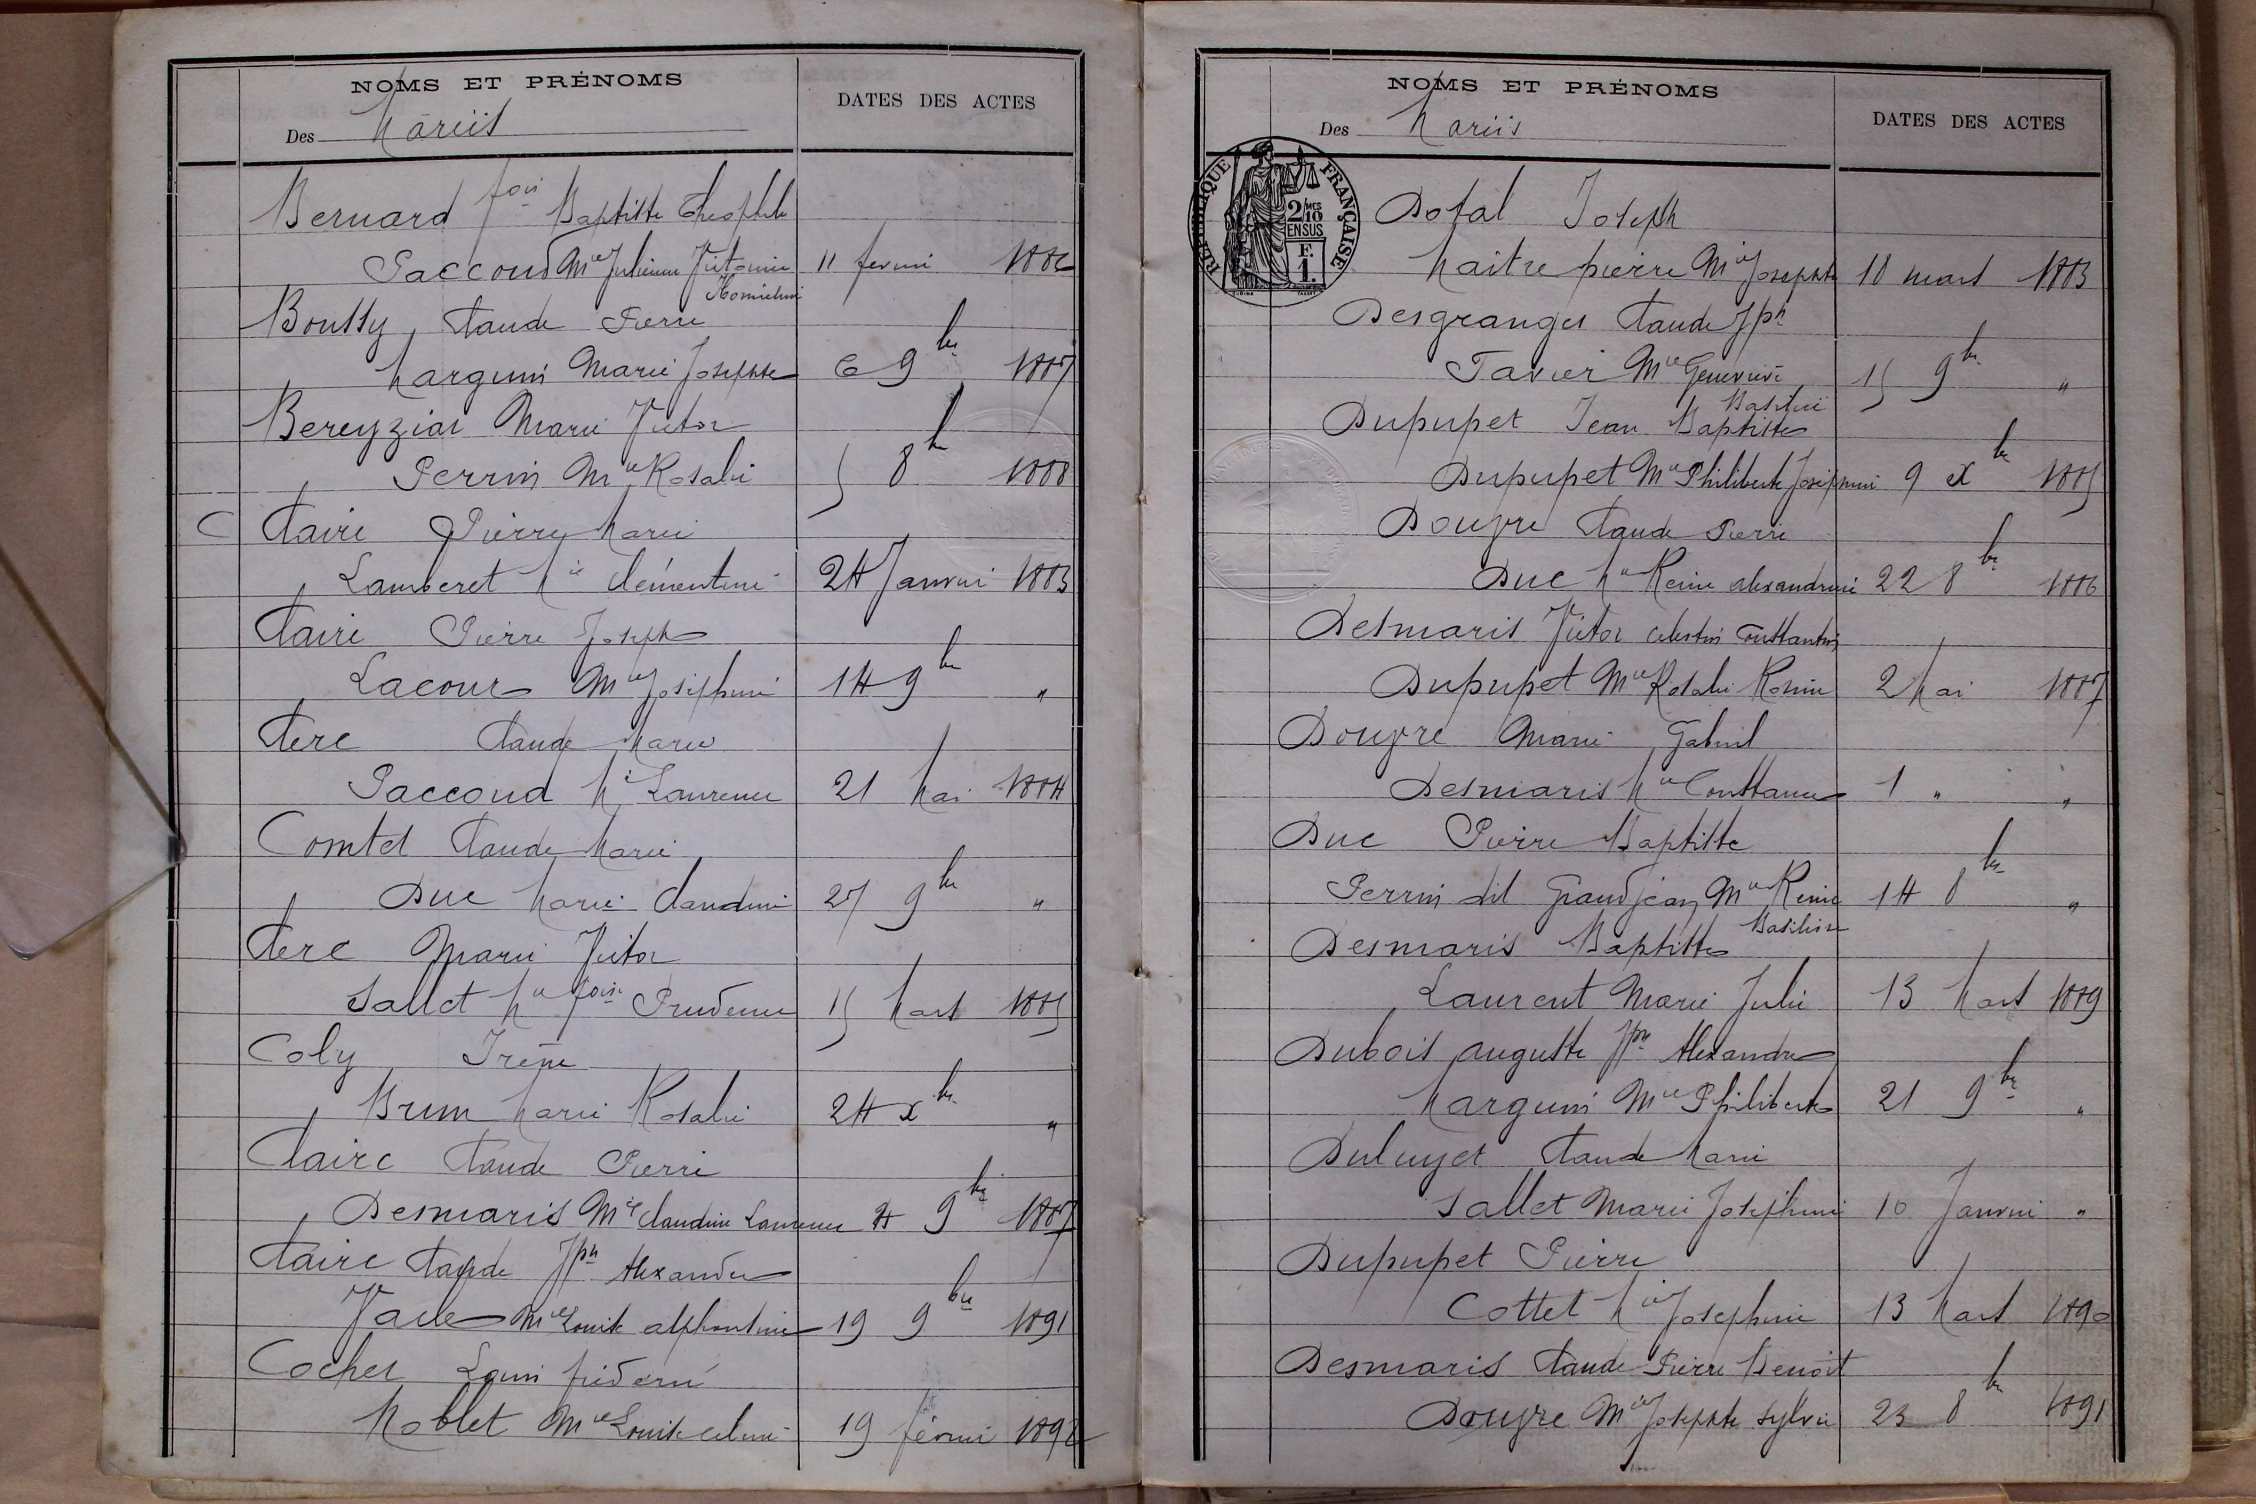 NOMS ET PRÉNOMS
DATES DES ACTES
Des Mariés
Bernard fois Baptiste Théophile
Paccoud Mie Julienne Victorine 11 fevrier 1886
Boussy Claude Pierre
Marguin Marie Josephte 6 9bre 1887
Bereyziat Marie Victor
Perrin Mie Rosalie 5 8b 1888
C Claire Pierre Marie
Lamberet Mie Clémentine 24 Janvier 1883
Claire Pierre Joseph
Lacour Mie Joséphine 14 9bre "
Clerc Claude Marie
Paccoud Mie Laurence 21 Mai 1884
Comtet Claude Marie
Duc Marie Claudine 27 9bre "
Clerc Marie Victor
Sallet Mie foise Prudence 15 Mars 1885
Coly Irène
Brun Marie Rosalie 24 xbre "
Claire Claude Pierre
Desmaris Mie Claudine Laurence 4 9bre 1887
Claire Claude Jph Alexandre
Mie Louise alphonsine 19 9bre 1891
Cochet Louis fréderic
Noblet Mie Louise celine 19 février 1892
NOMS ET PRÉNOMS
DATES DES ACTES
Des Mariés
RÉPUBLIQUE FRANÇAISE
2/10MES
EN SUS
F.
1.
Dofal Joseph
Maitrepierre Mie Josephte 10 mars 1883
Desgranges Claude Jph
Tavier Mie Genevieve 15 9bre "
Dupupet Jean Baptiste
Dupupet Mie Philiberte Joséphine 9 xbre 1885
Douyre Claude Pierre
Duc Mie Reine alexandrine 22 8bre 1886
Desmaris Victor celestin Constantin
Dupupet Mie Rosalie Rosine 2 Mai 1887
Douyre Marie Gabriel
Desmaris Mie Constance 1 " "
Duc Pierre Baptiste
Perrin dit Grandjean Mie Reine 14 8bre "
Desmaris Baptiste
Laurent Marie Julie 13 Mars 1889
Dubois auguste Jph Alexandre
Marguin Mie Philiberte 21 9bre "
Duluyet Claude Marie
Sallet Marie Joséphine 10 Janvier "
Dupupet Pierre
Cottet Mie Josephine 13 Mars 1890
Desmaris Claude Pierre Benoit
Douyre Mie Josephte Sylvie 23 8bre 1891